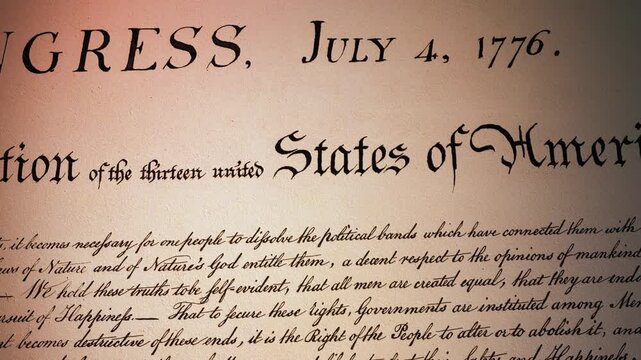 NGRESS, JULY 4, 1776.
tion of the thirteen united States of Ameri
it becomes necessary for one people to dissolve the political bands which have connected them with
aws of Nature and of Nature's God entitle them, a decent respect to the opinions of mankind
— We hold these truths to be self-evident, that all men are created equal, that they are endo
ursuit of Happiness. — That to secure these rights, Governments are instituted among Men
becomes destructive of these ends, it is the Right of the People to alter or to abolish it, and